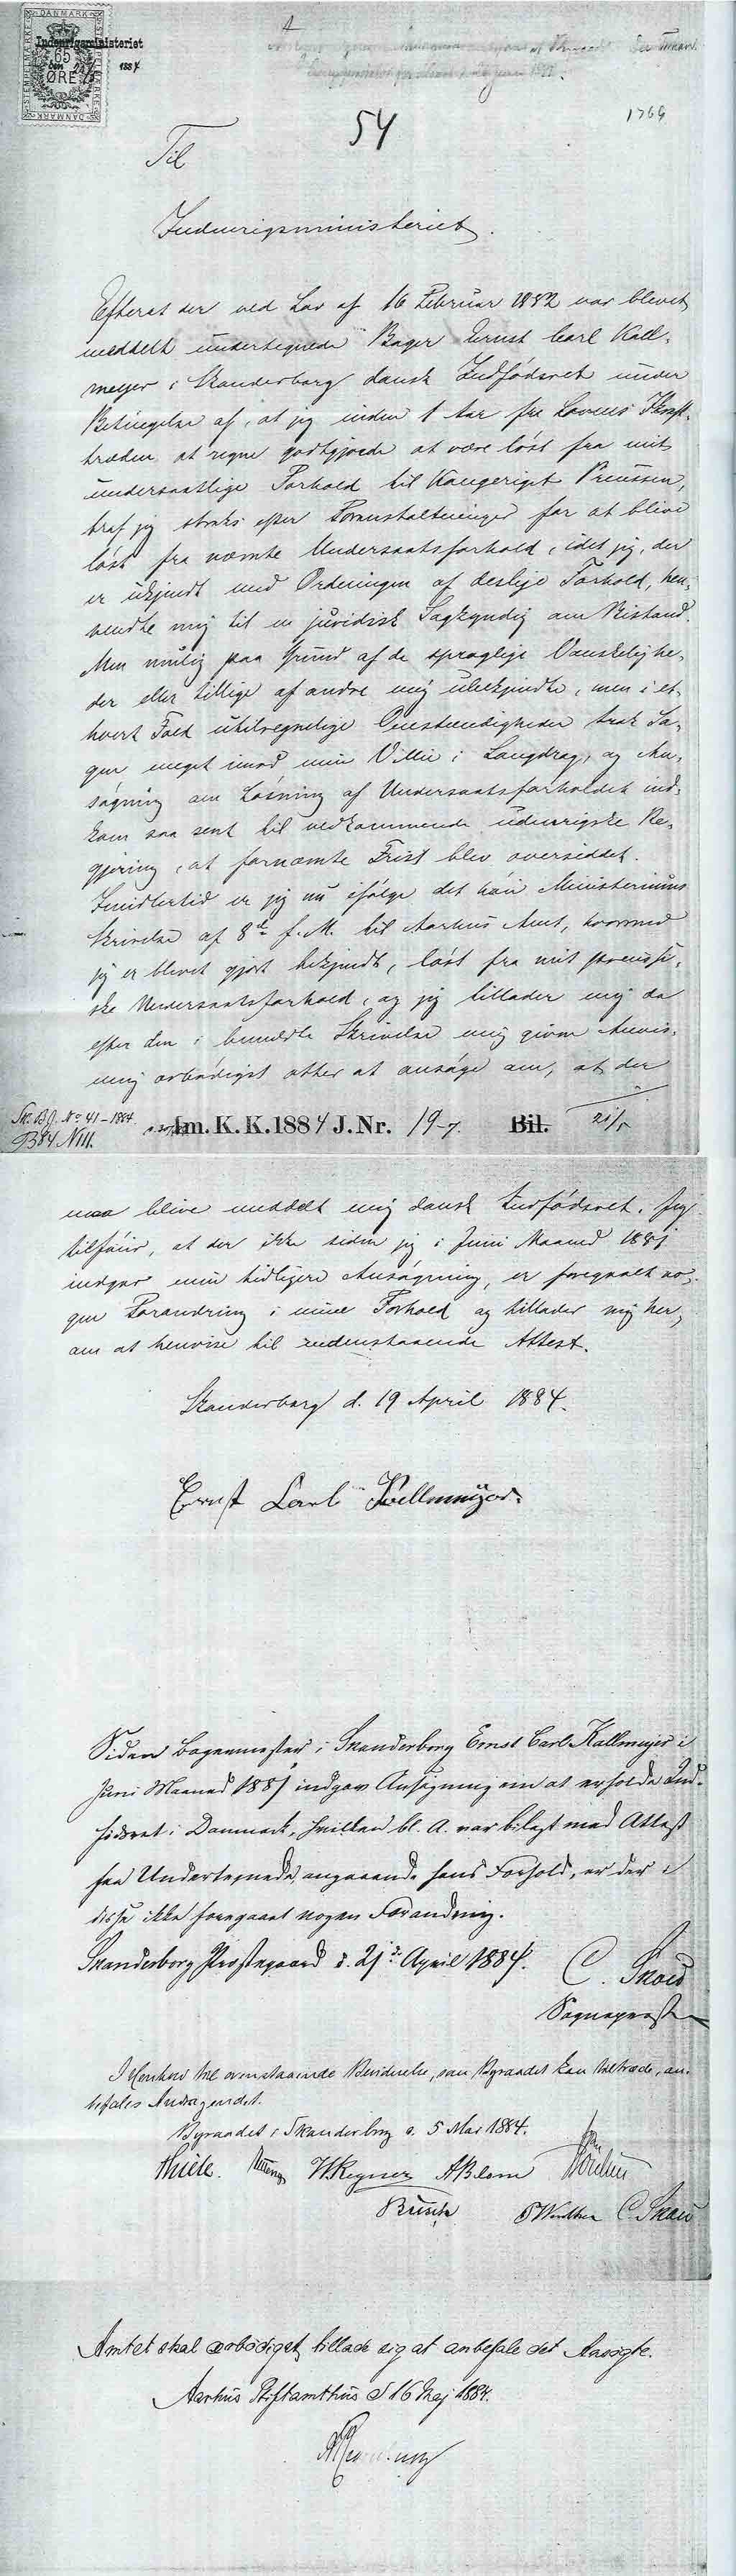 DANMARK
Indenrigsministeriet
65
ØRE
1884
54
1769
Til
Indenrigsministeriet.
Efterat der ved Lov af 16 Februar 1882 var blevet
meddelt undertegnede Bager Ernst Carl Kall-
meyer i Skanderborg dansk Indfødsret under
Betingelse af, at jeg inden 1 Aar fra Lovens Ikraft-
træden at regne godtgjorde at være løst fra mit
undersaatlige Forhold til Kongeriget Preussen,
traf jeg straks efter Foranstaltninger for at blive
løst fra nævnte Undersaatsforhold, idet jeg, der
er ukjendt med Ordningen af deslige Forhold, hen-
vendte mig til en juridisk Sagkyndig om Bistand.
Men mulig paa Grund af de sproglige Vanskelighe-
der eller tillige af andre mig ubekjendte, men i et-
hvert Fald utilregnelige Omstændigheder trak Sa-
gen meget imod min Villie i Langdrag, og An-
søgning om Løsning af Undersaatsforholdet ind-
kom saa sent til vedkommende udenrigske Re-
gjering, at fornævnte Frist blev oversiddet.
Imidlertid er jeg nu ifølge det høie Ministeriums
Skrivelse af 8de f. M. til Aarhus Amt, hvormed
jeg er blevet gjort bekjendt, løst fra mit preussi-
ske Undersaatsforhold, og jeg tillader mig da
efter den i bemeldte Skrivelse mig givne Anvis-
ning ærbødigst atter at ansøge om, at der
Sk. B.J. No 41-1884.
B84 N111.
Im. K. K. 1884 J. Nr. 19-7. Bil. 21/5
maa blive meddelt mig dansk Indfødsret. Jeg
tilføier, at der ikke siden jeg i Juni Maaned 1881
indgav min tidligere Ansøgning, er foregaaet no-
gen Forandring i mine Forhold og tillader mig her-
om at henvise til nedenstaaende Attest.
Skanderborg d. 19 April 1884.
Ernst Carl Kallmeyer.
Siden Bagermester i Skanderborg Ernst Carl Kallmeyer i
Juni Maaned 1881 indgav Ansøgning om at erholde Ind-
fødsret i Danmark, hvilken bl. A. var bilagt med Attest
fra Undertegnede angaaende hans Forhold, er der i
disse ikke foregaaet nogen Forandring.
Skanderborg Præstegaard d. 21de April 1884.
C. Skou
Sognepræst
I Henhold til ovenstaaende Bevidnelse, som Byraadet kan tiltræde, an-
befales Andragendet.
Byraadet i Skanderborg d. 5 Mai 1884.
Thiele. W. Regner A Blom
Busch C. Skou
Amtet skal ærbødigst tillade sig at anbefale det Ansøgte.
Aarhus Stiftamthus d 16 Maj 1884.